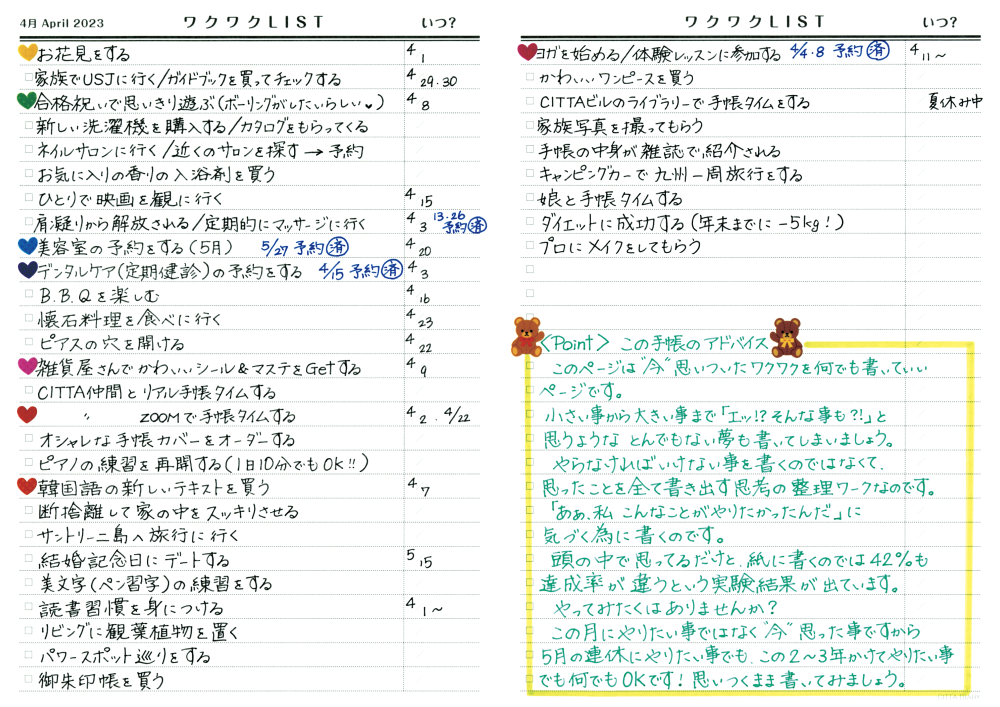 4月 April 2023 ワクワクLIST いつ?
お花見をする 4/1
家族でUSJに行く/ガイドブックを買ってチェックする 4/29.30
合格祝いで思いきり遊ぶ(ボーリングがしたいらしい♥) 4/8
新しい洗濯機を購入する/カタログをもらってくる
ネイルサロンに行く/近くのサロンを探す→予約
お気に入りの香りの入浴剤を買う
ひとりで映画を観に行く 4/15
肩凝りから解放される/定期的にマッサージに行く 4/3 13.26 予約済
美容室の予約をする(5月) 5/27 予約済 4/20
デンタルケア(定期健診)の予約をする 4/15 予約済 4/3
B.B.Qを楽しむ 4/16
懐石料理を食べに行く 4/23
ピアスの穴を開ける 4/22
雑貨屋さんでかわいいシール&マステをGetする 4/9
CITTA仲間とリアル手帳タイムする
〃 ZOOMで手帳タイムする 4/2 . 4/22
オシャレな手帳カバーをオーダーする
ピアノの練習を再開する(1日10分でもOK!!)
韓国語の新しいテキストを買う 4/7
断捨離して家の中をスッキリさせる
サントリーニ島へ旅行に行く
結婚記念日にデートする 5/15
美文字(ペン習字)の練習をする
読書習慣を身につける 4/1~
リビングに観葉植物を置く
パワースポット巡りをする
御朱印帳を買う
ワクワクLIST いつ?
ヨガを始める/体験レッスンに参加する 4/4・8 予約済 4/11~
かわいいワンピースを買う
CITTAビルのライブラリーで手帳タイムをする 夏休み中
家族写真を撮ってもらう
手帳の中身が雑誌で紹介される
キャンピングカーで九州一周旅行をする
娘と手帳タイムする
ダイエットに成功する(年末までに-5kg!)
プロにメイクをしてもらう
<Point> この手帳のアドバイス
このページは"今"思いついたワクワクを何でも書いていい
ページです。
小さい事から大きい事まで「エッ!?そんな事も?!」と
思うような とんでもない夢も書いてしまいましょう。
やらなければいけない事を書くのではなくて、
思ったことを全て書き出す思考の整理ワークなのです。
「あぁ、私 こんなことがやりたかったんだ」に
気づく為に書くのです。
頭の中で思ってるだけと、紙に書くのでは42%も
達成率が違うという実験結果が出ています。
やってみたくはありませんか?
この月にやりたい事ではなく"今"思った事ですから
5月の連休にやりたい事でも、この2~3年かけてやりたい事
でも何でもOKです!思いつくまま書いてみましょう。